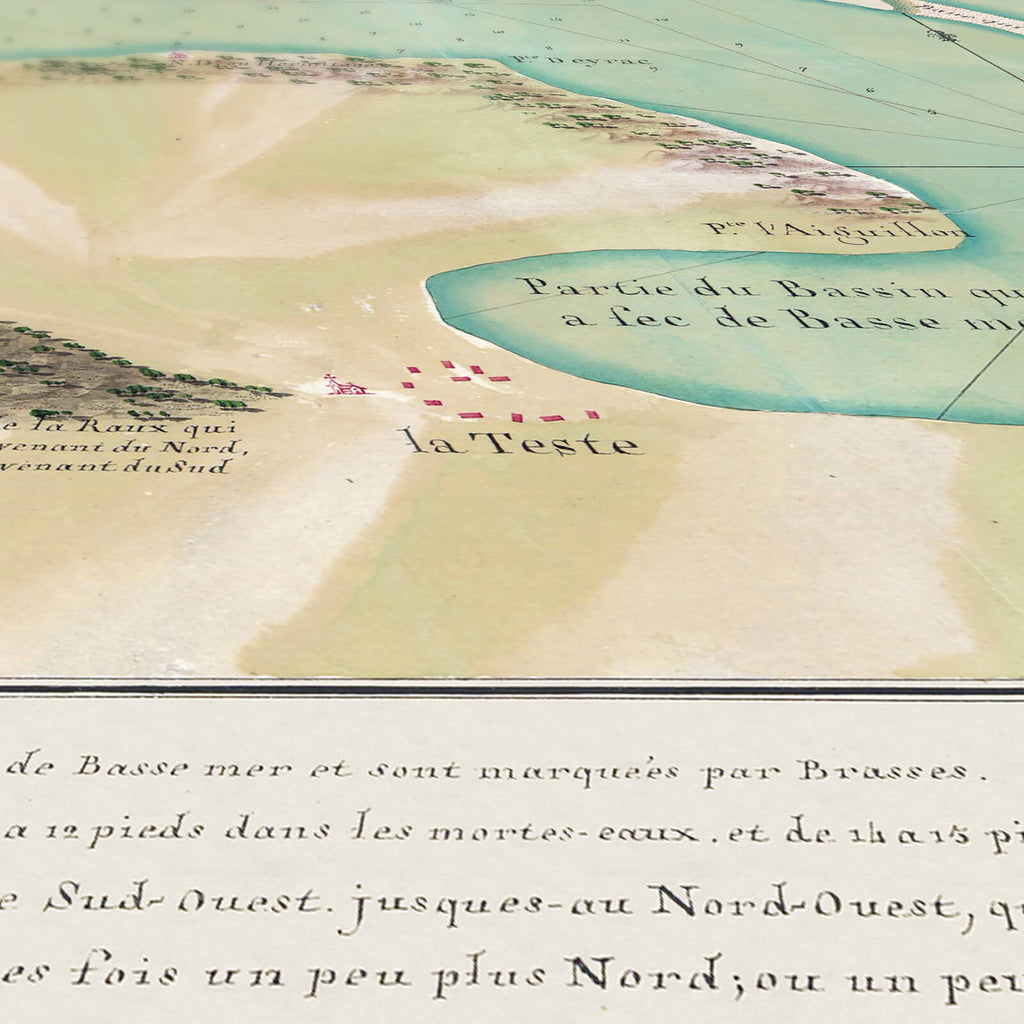 Pte Deyrac
Pte l'Aiguillon
Partie du Bassin qu
a sec de Basse me
la Teste
e la Raux qui
venant du Nord,
venant du Sud
de Basse mer et sont marqueés par Brasses.
a 12 pieds dans les mortes-eaux. et de 14 a 15 pi
e Sud-Ouest. jusques-au Nord-Ouest, qu
es fois un peu plus Nord; ou un peu